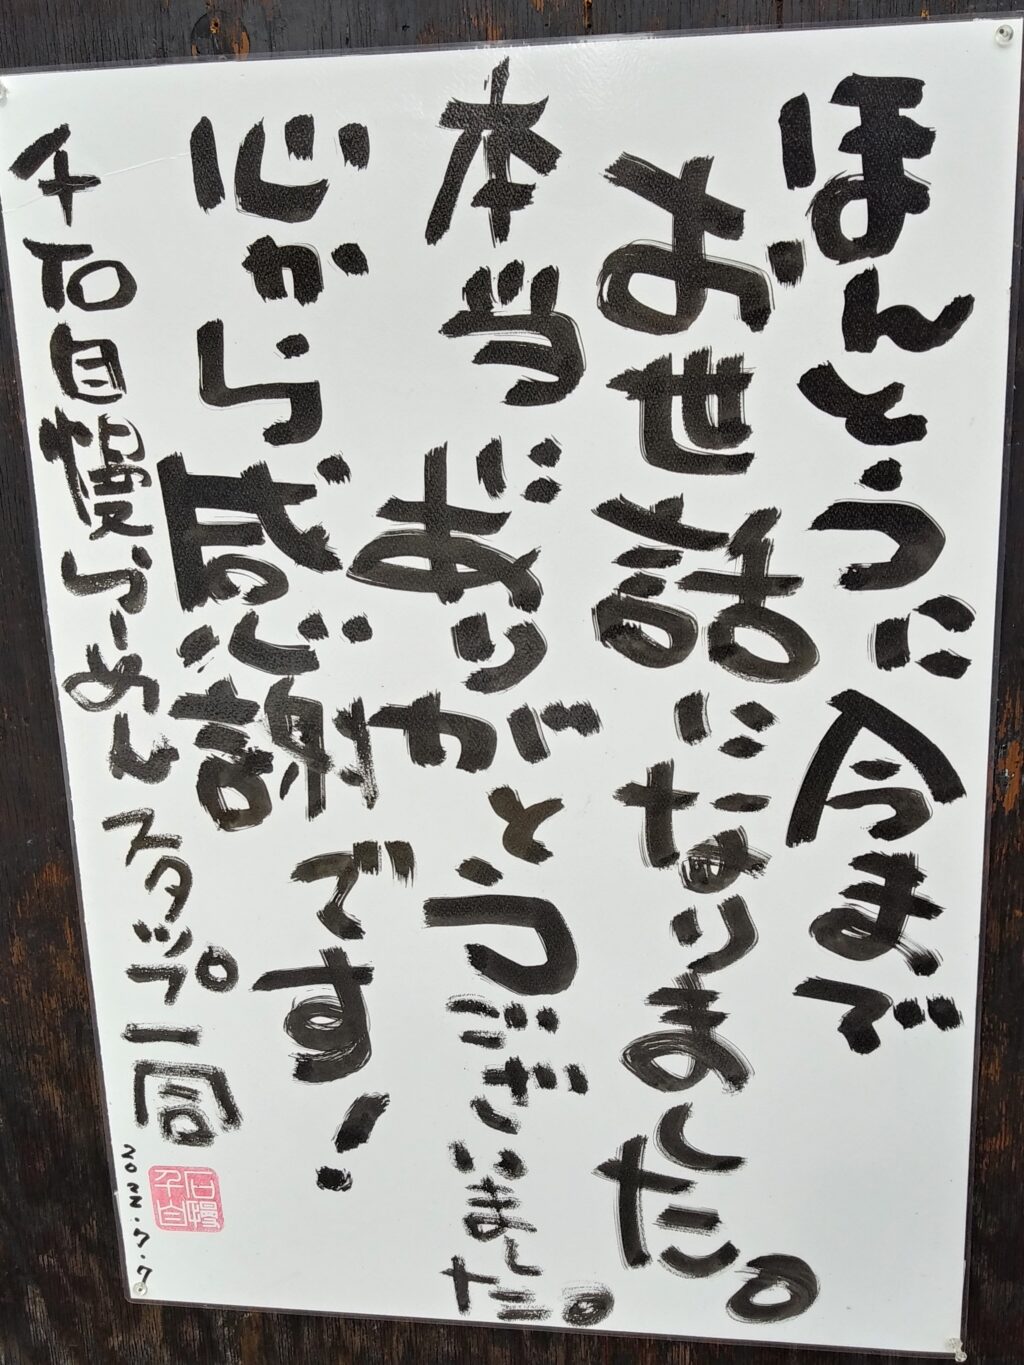 ほんとうに今まで
お世話になりました。
本当にありがとうございました。
心から感謝です!
千石自慢らーめんスタッフ一同
千石自慢
2022.7.7